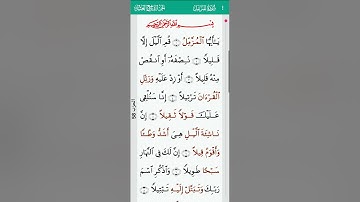 سُورَةُ المُزَّمِّلِ
بِسْمِ ٱللَّهِ ٱلرَّحْمَٰنِ ٱلرَّحِيمِ
يَٰٓأَيُّهَا ٱلْمُزَّمِّلُ ۝ قُمِ ٱلَّيْلَ إِلَّا
قَلِيلًا ۝ نِّصْفَهُۥٓ أَوِ ٱنقُصْ
مِنْهُ قَلِيلًا ۝ أَوْ زِدْ عَلَيْهِ وَرَتِّلِ
ٱلْقُرْءَانَ تَرْتِيلًا ۝ إِنَّا سَنُلْقِى
عَلَيْكَ قَوْلًا ثَقِيلًا ۝ إِنَّ
نَاشِئَةَ ٱلَّيْلِ هِىَ أَشَدُّ وَطْـًٔا
وَأَقْوَمُ قِيلًا ۝ إِنَّ لَكَ فِى ٱلنَّهَارِ
سَبْحًا طَوِيلًا ۝ وَٱذْكُرِ ٱسْمَ
رَبِّكَ وَتَبَتَّلْ إِلَيْهِ تَبْتِيلًا ۝